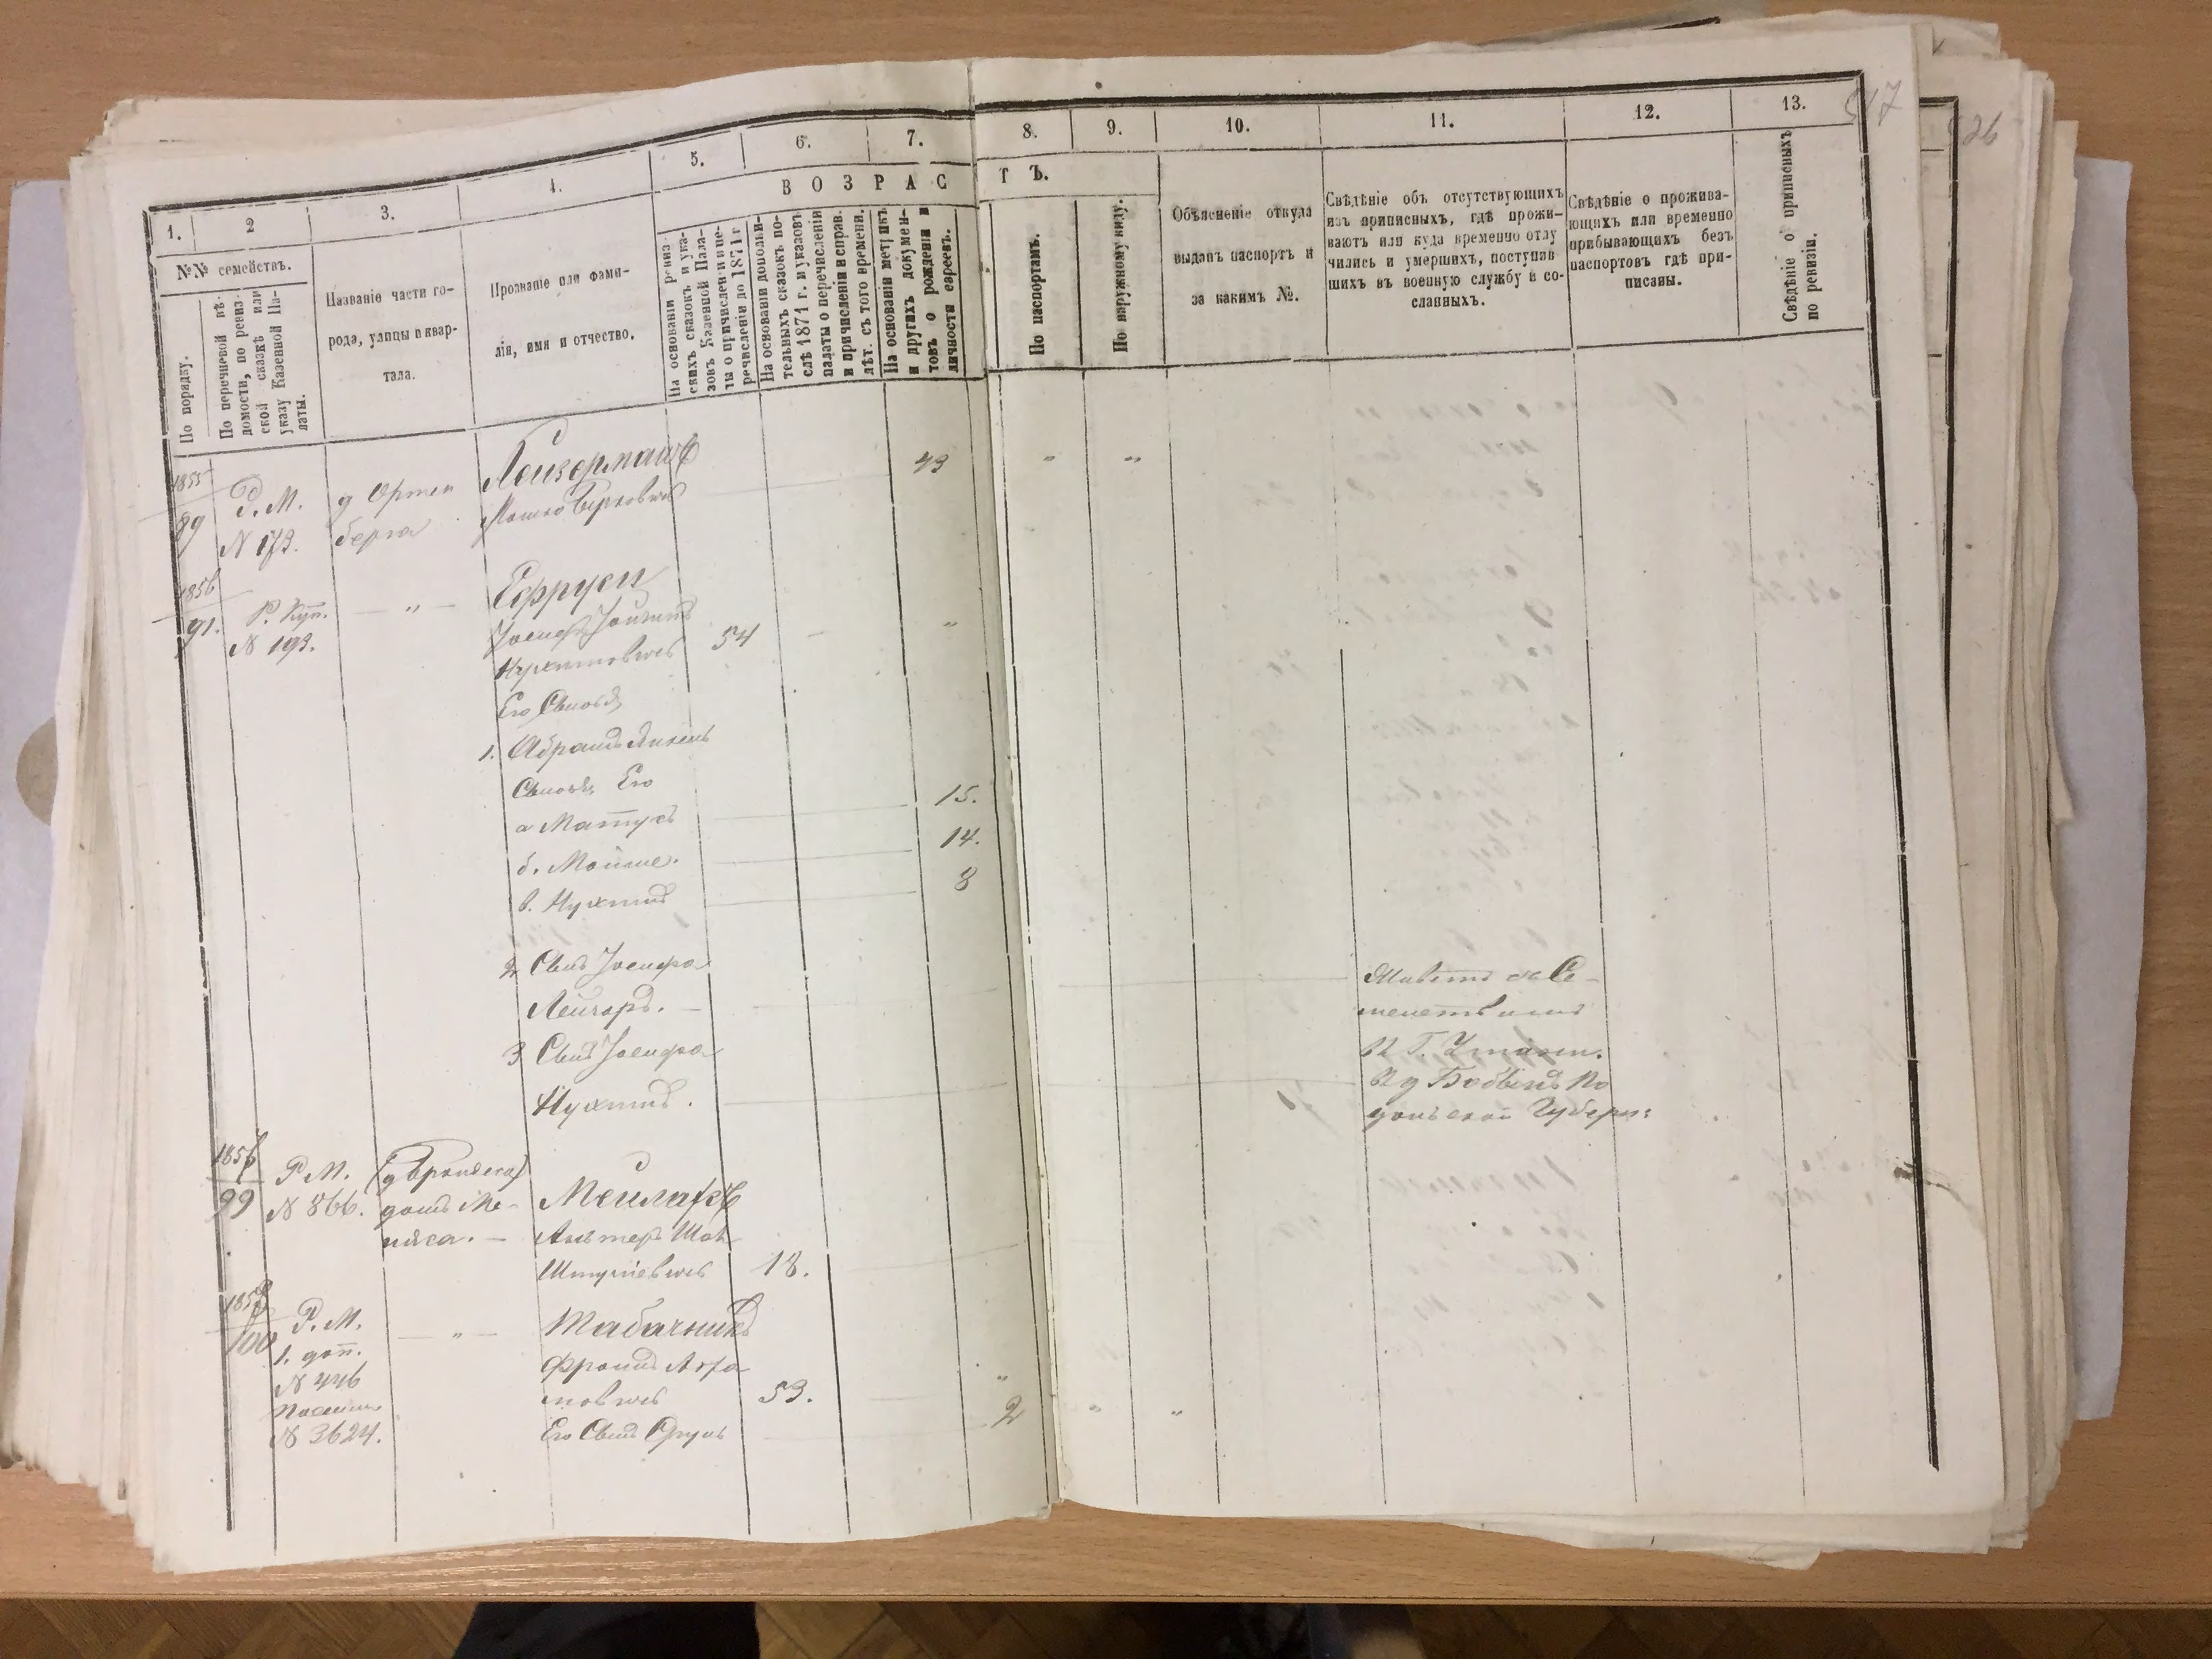 1.
2
3.
4.
5.
6.
7.
8.
9.
10.
11.
12.
13.
517
№№ семействъ.
По порядку.
По перечневой вѣ-
домости, по ревиз-
ской сказкѣ или
указу Казенной Па-
латы.
Названіе части го-
рода, улицы и квар-
тала.
Прозваніе или фами-
лія, имя и отчество.
ВОЗРАС
ТЪ.
На основаніи ревиз-
скихъ сказокъ и ука-
зовъ Казенной Пала-
ты о причислені и пе-
речисленіи до 1871 г
На основаніи дополни-
тельныхъ сказокъ по-
слѣ 1871 г. и указовъ
палаты о перечисленіи
и причисленіи и справ.
лѣт. съ того времени.
На основаніи метрикъ
и другихъ докумен-
товъ о рожденіи и
личности евреевъ.
По паспортамъ.
По наружному виду.
Объясненіе откуда
выданъ паспортъ и
за какимъ №.
Свѣдѣніе объ отсутствующихъ
изъ приписныхъ, гдѣ прожи-
ваютъ или куда временно отлу
чились и умершихъ, поступив
шихъ въ военную службу и со-
сланныхъ.
Свѣдѣніе о прожива-
ющихъ или временно
прибывающихъ безъ
паспортовъ гдѣ при-
писаны.
Свѣдѣніе о приписныхъ
по ревизіи.
26
1855
89
Р. М.
N 173.
д Ортен
берга
Лейзерманъ
Мошко Берковичъ
49
1856
91.
Р. Куп.
N 193.
Ефруси
Іосифъ
Нухимовичъ
54
Его Сыновья
1. Абрамъ
Сыновья Его
а Матусъ
15.
б. Мойше.
14.
в. Нухимъ
8
2. Сынъ Іосифа
Лейзоръ.
Живетъ
3 Сынъ Іосифа
В Г. Умани.
Нухимъ.
По
дольской Губерн:
1857
99
Р М.
N 866.
домъ Ме-
Мейлахсъ
Альтеръ
Шмулевичъ
18.
1858
100
Р. М.
1. доп.
N 446
N 3624.
Табачникъ
Фроимъ Авра
мовичъ
53.
Его Сынъ Сруль
2